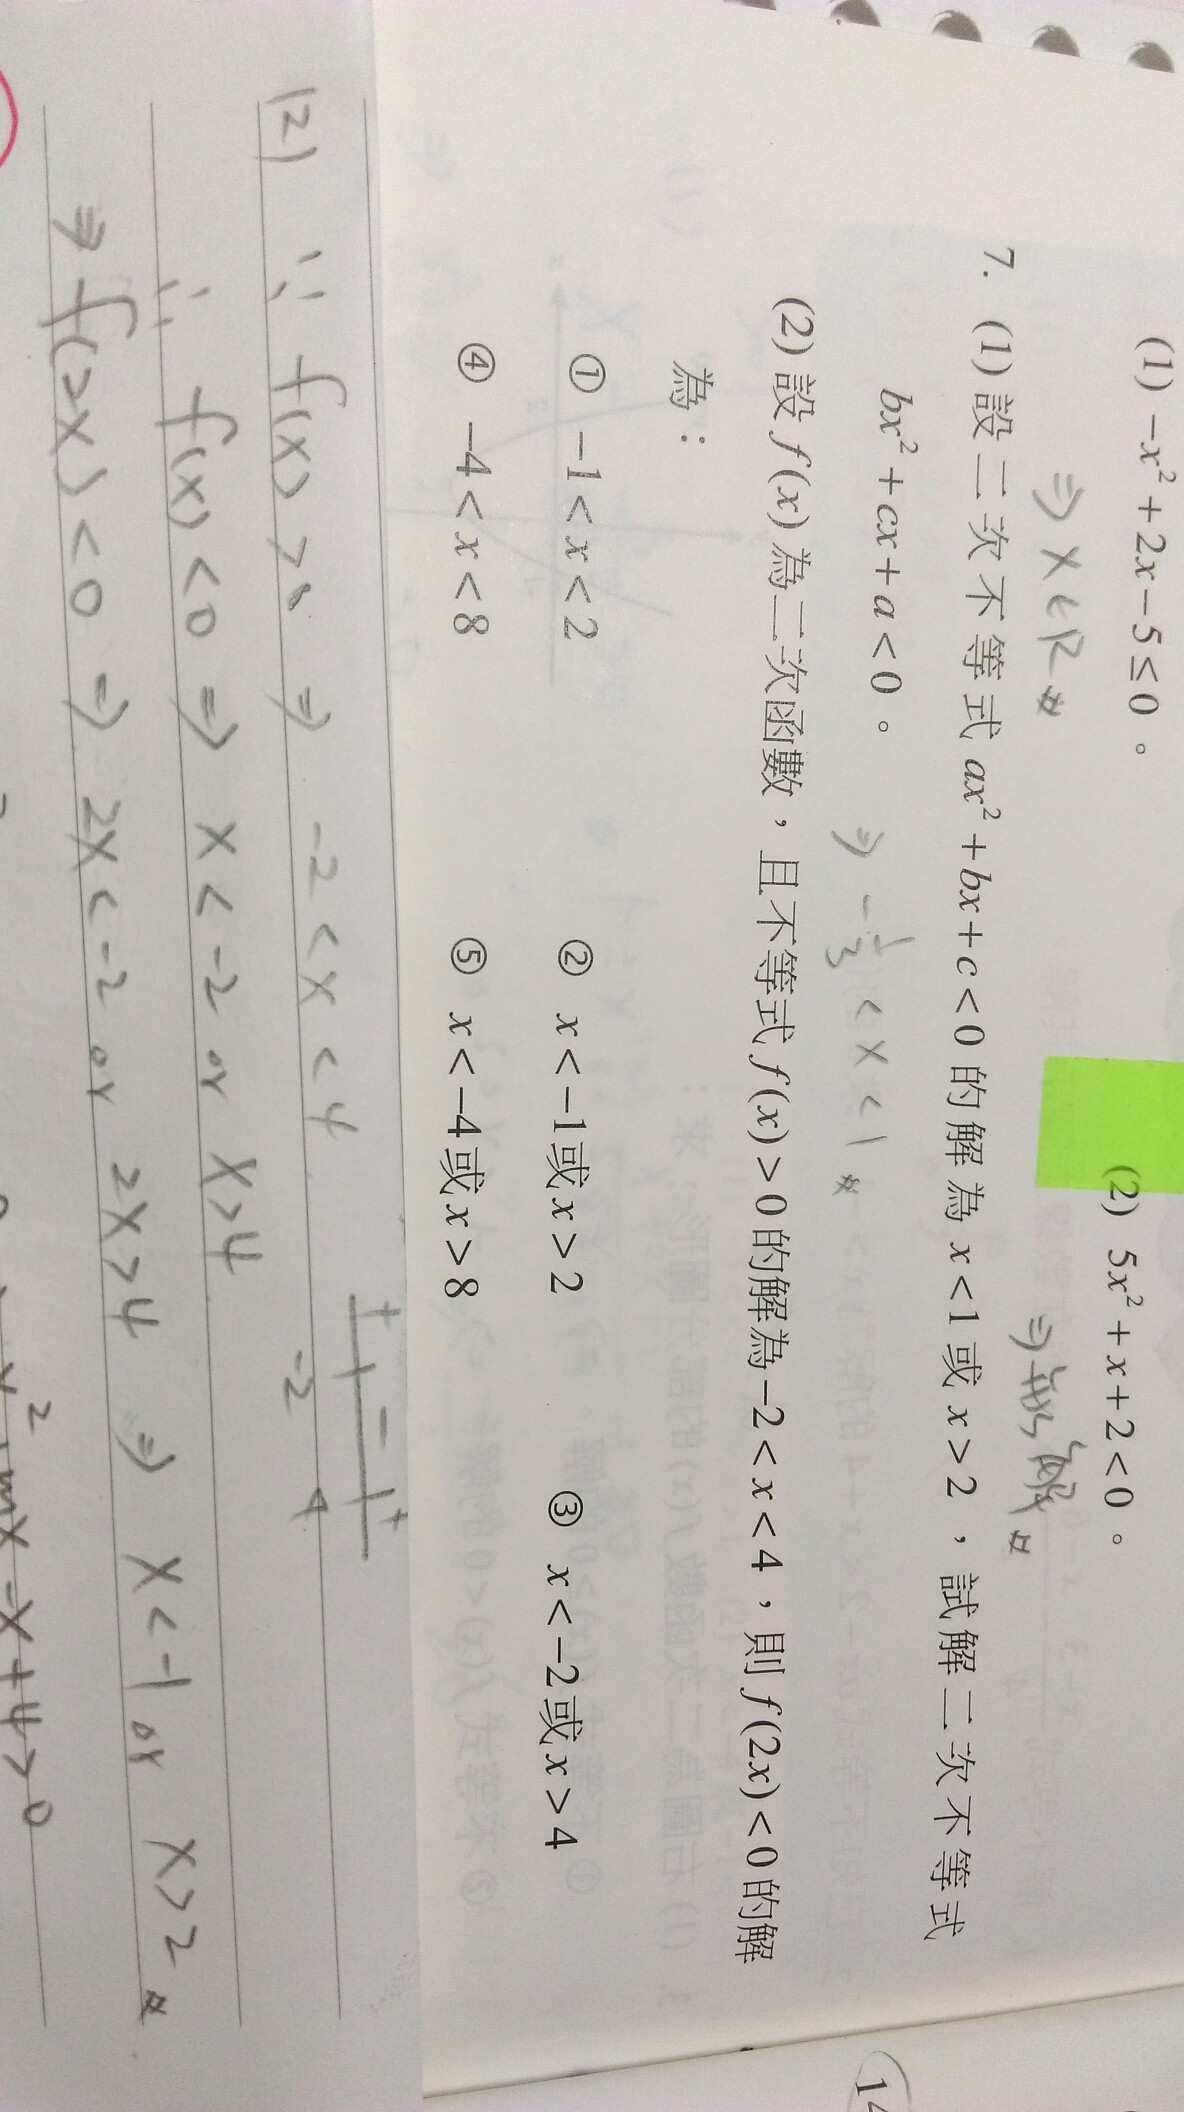 (1) −x²+2x−5≤0。 (2) 5x²+x+2<0。
⇒ x∈R ⇒ 無解
7. (1) 設二次不等式 ax²+bx+c<0 的解為 x<1 或 x>2，試解二次不等式
bx²+cx+a<0。 ⇒ -1/3 < x < 1
(2) 設 f(x) 為二次函數，且不等式 f(x)>0 的解為 −2<x<4，則 f(2x)<0 的解
為：
① −1<x<2 ② x<−1或x>2 ③ x<−2或x>4
④ −4<x<8 ⑤ x<−4或x>8
+ − +
-2 4
(2) ∵ f(x)>0 ⇒ -2<x<4
∴ f(x)<0 ⇒ x<-2 or x>4
⇒ f(2x)<0 ⇒ 2x<-2 or 2x>4 ⇒ x<-1 or x>2
-x+4>0
14